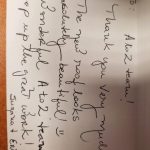 To: A to Z team!
Thank you very much
The new roof looks
absolutely beautiful!!
Wonderful A to Z team
up the great work
Suzanne